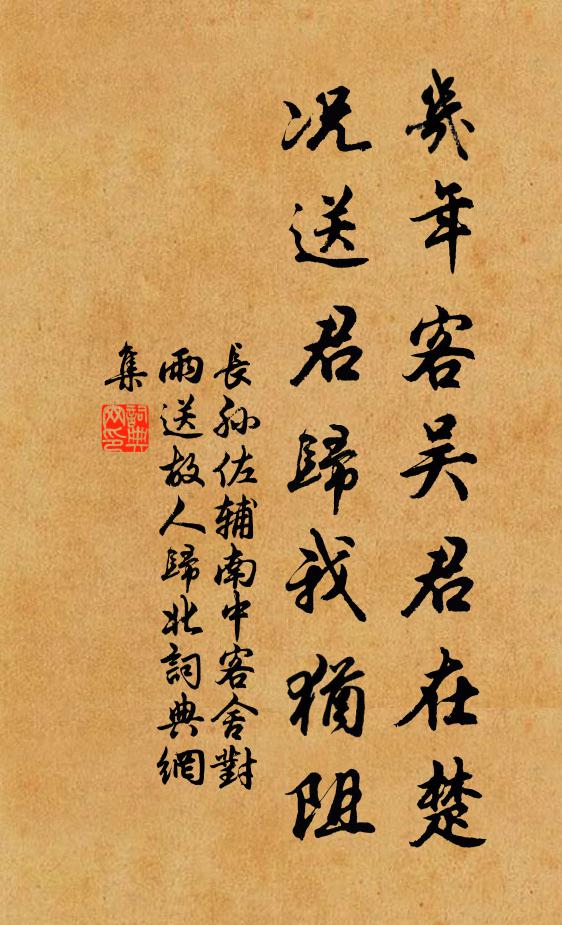 幾年客吴君在楚
况送君歸我猶阻
長孫佐輔南中客舍對
雨送故人歸北詞典網
集
詞典